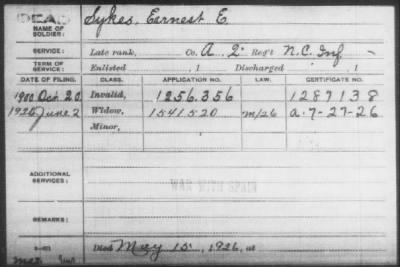 DEAD
NAME OF SOLDIER: Sykes, Earnest E.
SERVICE: Late rank, Co. A 2 Reg't N.C. Inf
TERM OF SERVICE: Enlisted , 1 Discharged , 1
DATE OF FILING. CLASS. APPLICATION NO. LAW. CERTIFICATE NO.
1900 Oct. 20 Invalid, 1256.356 1287138
1926 June 2 Widow, 1541520 m/26 a. 7-27-26
Minor,
ADDITIONAL SERVICES:
WAR WITH SPAIN
REMARKS:
Died May 15, 1926, at